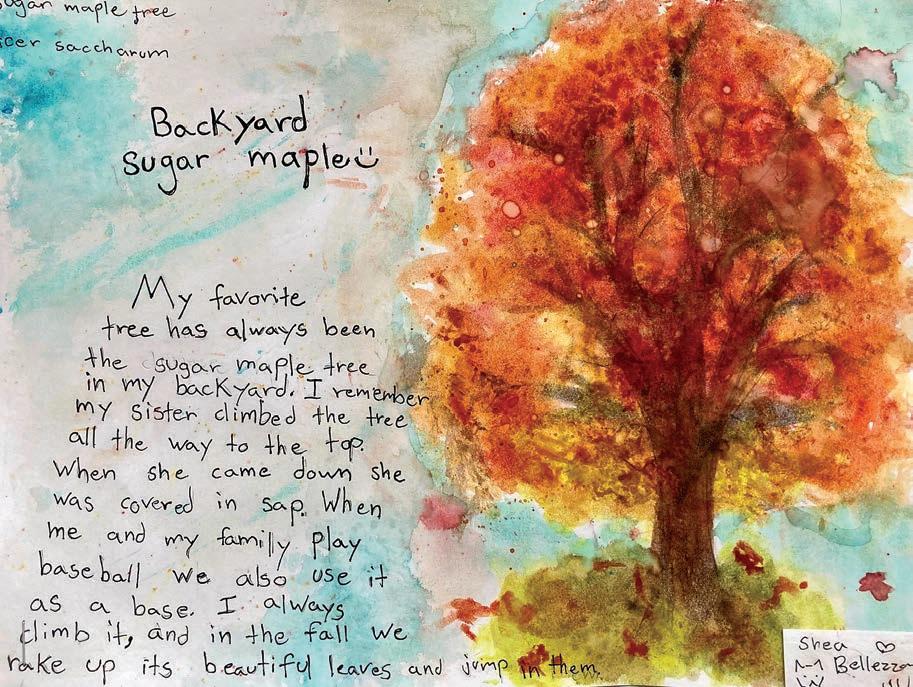 sugar maple tree
acer saccharum
Backyard
sugar maple
My favorite
tree has always been
the sugar maple tree
in my backyard. I remember
my sister climbed the tree
all the way to the top.
When she came down she
was covered in sap. When
me and my family play
baseball we also use it
as a base. I always
climb it, and in the fall we
rake up its beautiful leaves and jump in them.
Shea
Bellezza